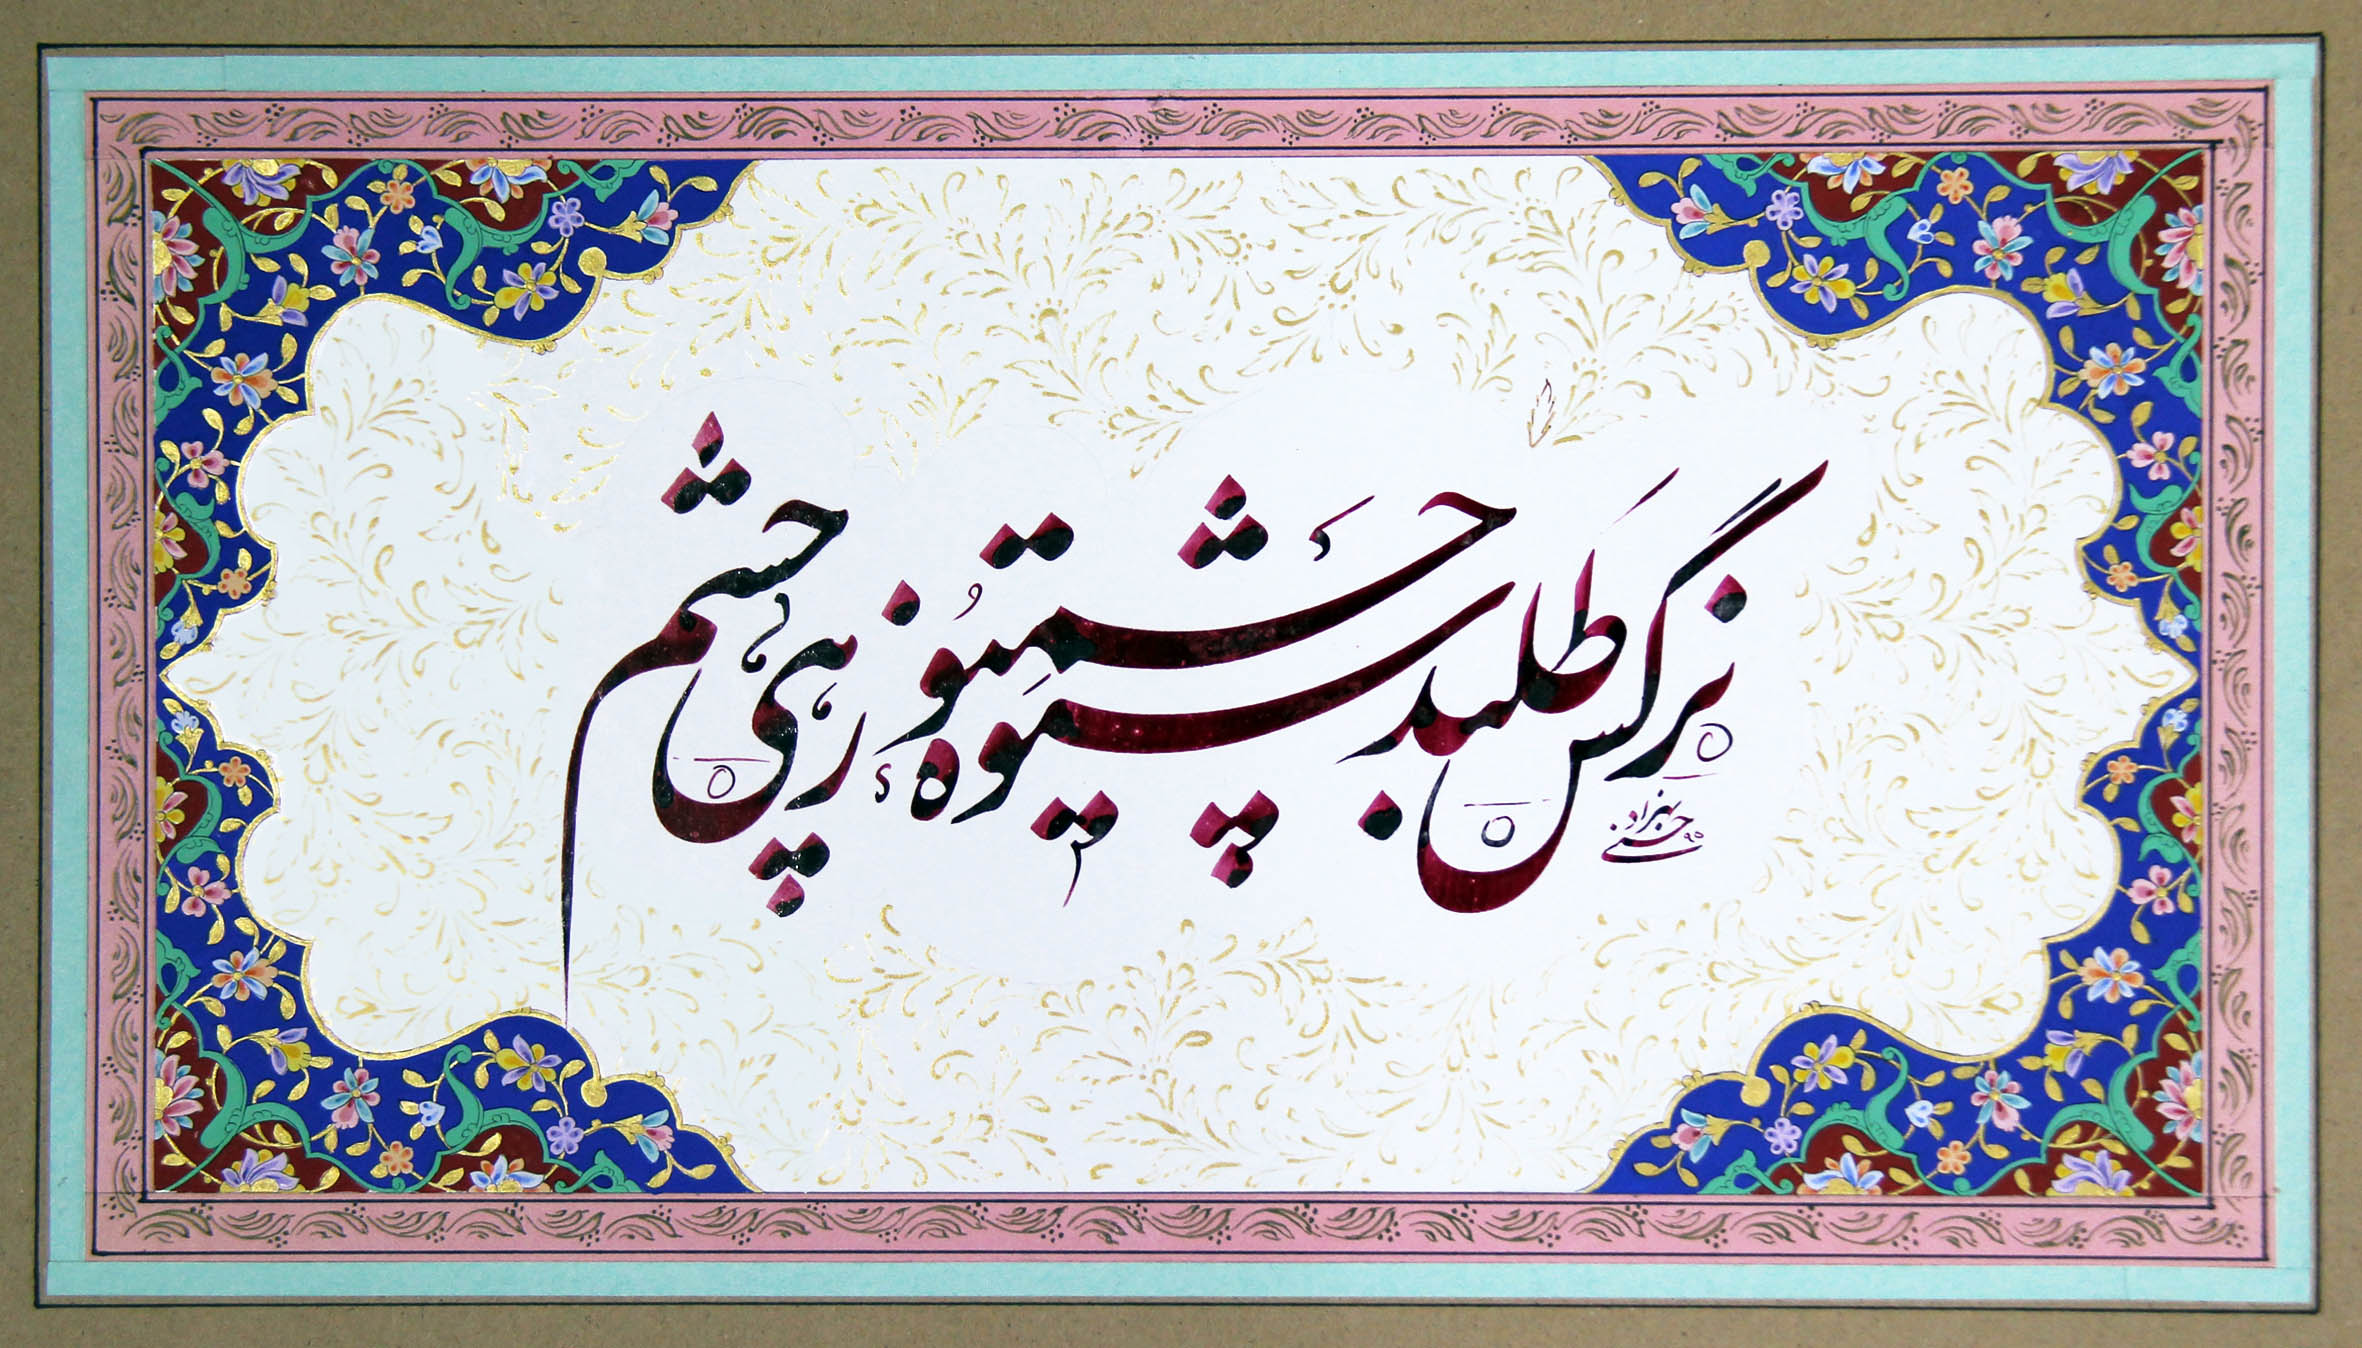 نرگس طلبد شیوه چشم تو زهی چشم
بهزاد حسنی ۹۵